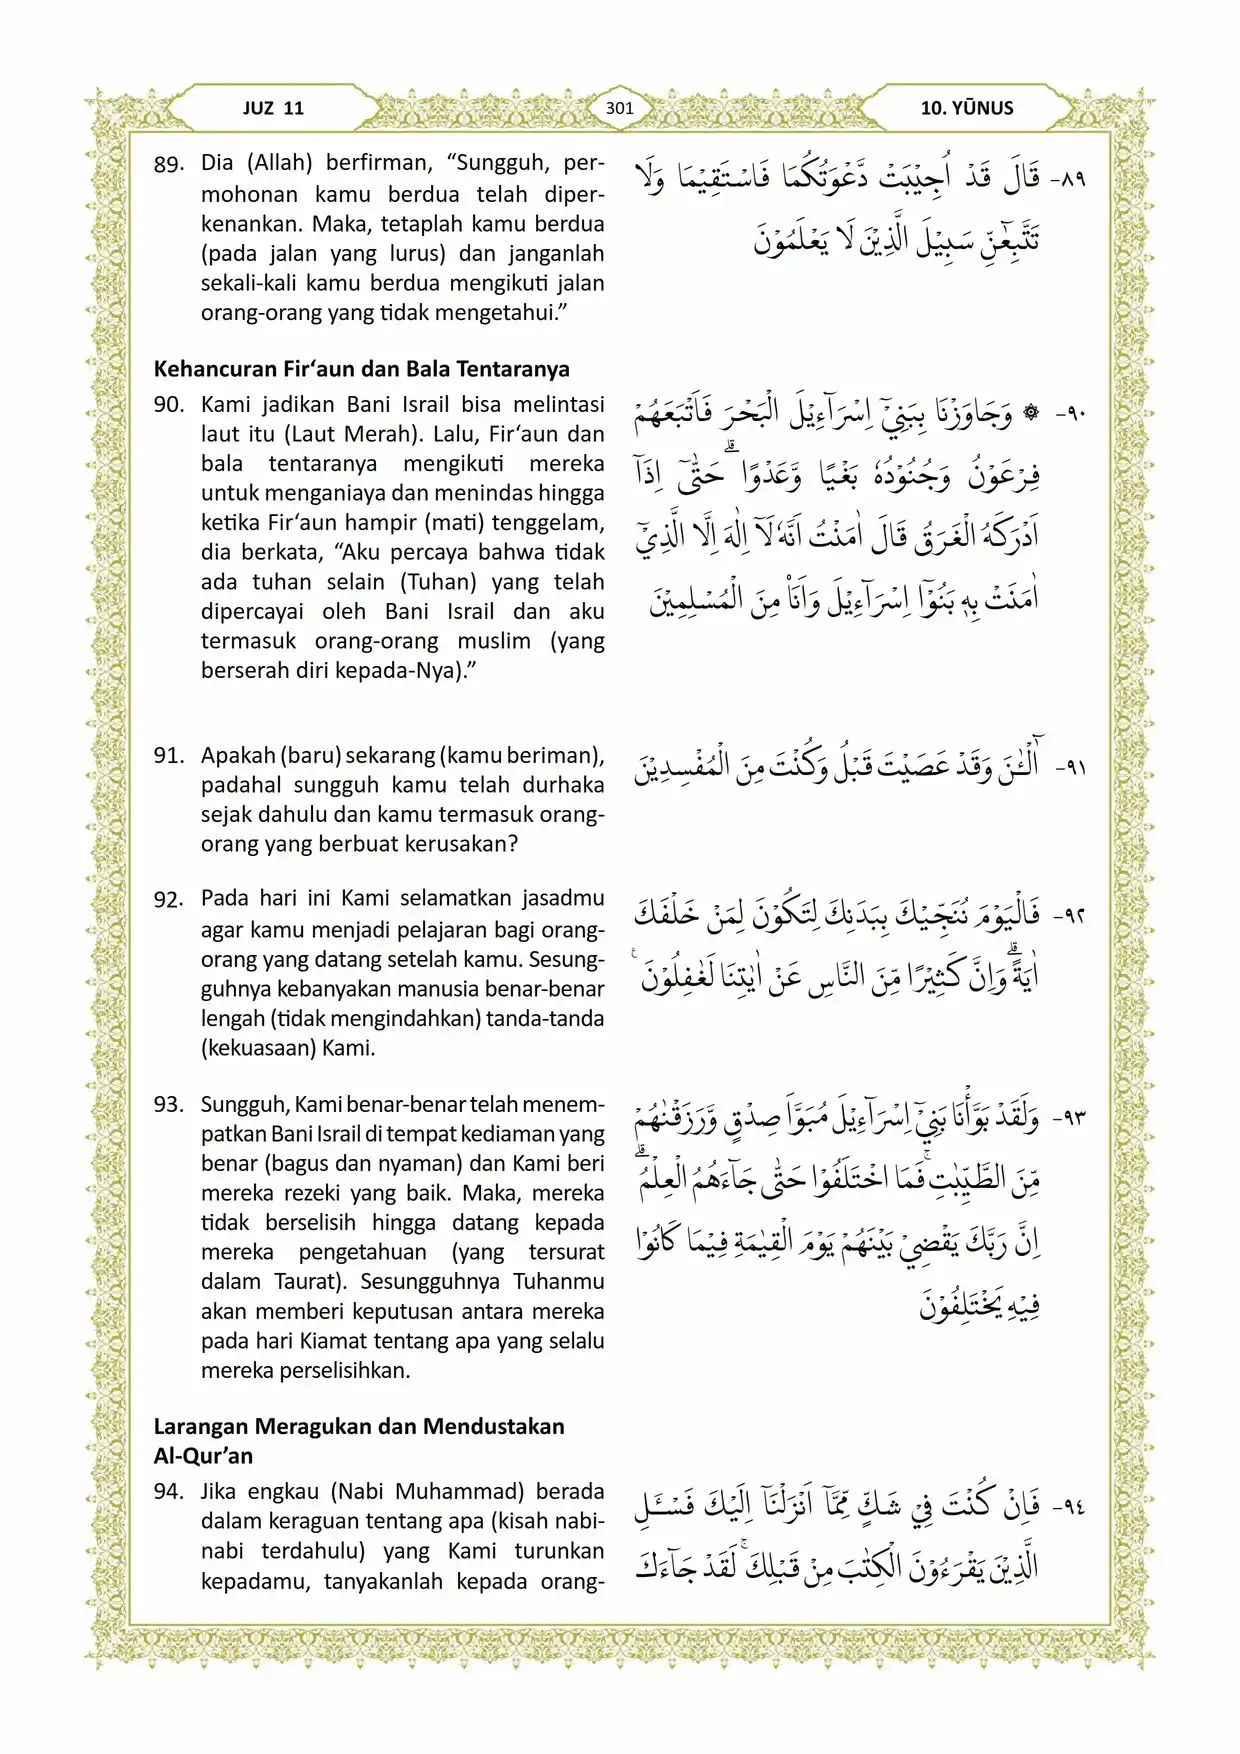 JUZ 11
301
10. YŪNUS
89. Dia (Allah) berfirman, “Sungguh, per-
mohonan kamu berdua telah diper-
kenankan. Maka, tetaplah kamu berdua
(pada jalan yang lurus) dan janganlah
sekali-kali kamu berdua mengikuti jalan
orang-orang yang tidak mengetahui.”
٨٩- قَالَ قَدْ اُجِيْبَتْ دَّعْوَتُكُمَا فَاسْتَقِيْمَا وَلَا
تَتَّبِعٰۤنِّ سَبِيْلَ الَّذِيْنَ لَا يَعْلَمُوْنَ
Kehancuran Fir‘aun dan Bala Tentaranya
90. Kami jadikan Bani Israil bisa melintasi
laut itu (Laut Merah). Lalu, Fir‘aun dan
bala tentaranya mengikuti mereka
untuk menganiaya dan menindas hingga
ketika Fir‘aun hampir (mati) tenggelam,
dia berkata, “Aku percaya bahwa tidak
ada tuhan selain (Tuhan) yang telah
dipercayai oleh Bani Israil dan aku
termasuk orang-orang muslim (yang
berserah diri kepada-Nya).”
٩٠- ۞ وَجَاوَزْنَا بِبَنِيْٓ اِسْرَاۤءِيْلَ الْبَحْرَ فَاَتْبَعَهُمْ
فِرْعَوْنُ وَجُنُوْدُهٗ بَغْيًا وَّعَدْوًاۗ حَتّٰىٓ اِذَآ
اَدْرَكَهُ الْغَرَقُ قَالَ اٰمَنْتُ اَنَّهٗ لَآ اِلٰهَ اِلَّا الَّذِيْٓ
اٰمَنَتْ بِهٖ بَنُوْٓا اِسْرَاۤءِيْلَ وَاَنَا۠ مِنَ الْمُسْلِمِيْنَ
91. Apakah (baru) sekarang (kamu beriman),
padahal sungguh kamu telah durhaka
sejak dahulu dan kamu termasuk orang-
orang yang berbuat kerusakan?
٩١- اٰۤلْـٰٔنَ وَقَدْ عَصَيْتَ قَبْلُ وَكُنْتَ مِنَ الْمُفْسِدِيْنَ
92. Pada hari ini Kami selamatkan jasadmu
agar kamu menjadi pelajaran bagi orang-
orang yang datang setelah kamu. Sesung-
guhnya kebanyakan manusia benar-benar
lengah (tidak mengindahkan) tanda-tanda
(kekuasaan) Kami.
٩٢- فَالْيَوْمَ نُنَجِّيْكَ بِبَدَنِكَ لِتَكُوْنَ لِمَنْ خَلْفَكَ
اٰيَةًۗ وَاِنَّ كَثِيْرًا مِّنَ النَّاسِ عَنْ اٰيٰتِنَا لَغٰفِلُوْنَ ࣖ
93. Sungguh, Kami benar-benar telah menem-
patkan Bani Israil di tempat kediaman yang
benar (bagus dan nyaman) dan Kami beri
mereka rezeki yang baik. Maka, mereka
tidak berselisih hingga datang kepada
mereka pengetahuan (yang tersurat
dalam Taurat). Sesungguhnya Tuhanmu
akan memberi keputusan antara mereka
pada hari Kiamat tentang apa yang selalu
mereka perselisihkan.
٩٣- وَلَقَدْ بَوَّأْنَا بَنِيْٓ اِسْرَاۤءِيْلَ مُبَوَّاَ صِدْقٍ وَّرَزَقْنٰهُمْ
مِّنَ الطَّيِّبٰتِۚ فَمَا اخْتَلَفُوْا حَتّٰى جَاۤءَهُمُ الْعِلْمُۗ
اِنَّ رَبَّكَ يَقْضِيْ بَيْنَهُمْ يَوْمَ الْقِيٰمَةِ فِيْمَا كَانُوْا
فِيْهِ يَخْتَلِفُوْنَ
Larangan Meragukan dan Mendustakan
Al-Qur’an
94. Jika engkau (Nabi Muhammad) berada
dalam keraguan tentang apa (kisah nabi-
nabi terdahulu) yang Kami turunkan
kepadamu, tanyakanlah kepada orang-
٩٤- فَاِنْ كُنْتَ فِيْ شَكٍّ مِّمَّآ اَنْزَلْنَآ اِلَيْكَ فَسْـَٔلِ
الَّذِيْنَ يَقْرَءُوْنَ الْكِتٰبَ مِنْ قَبْلِكَۚ لَقَدْ جَاۤءَكَ